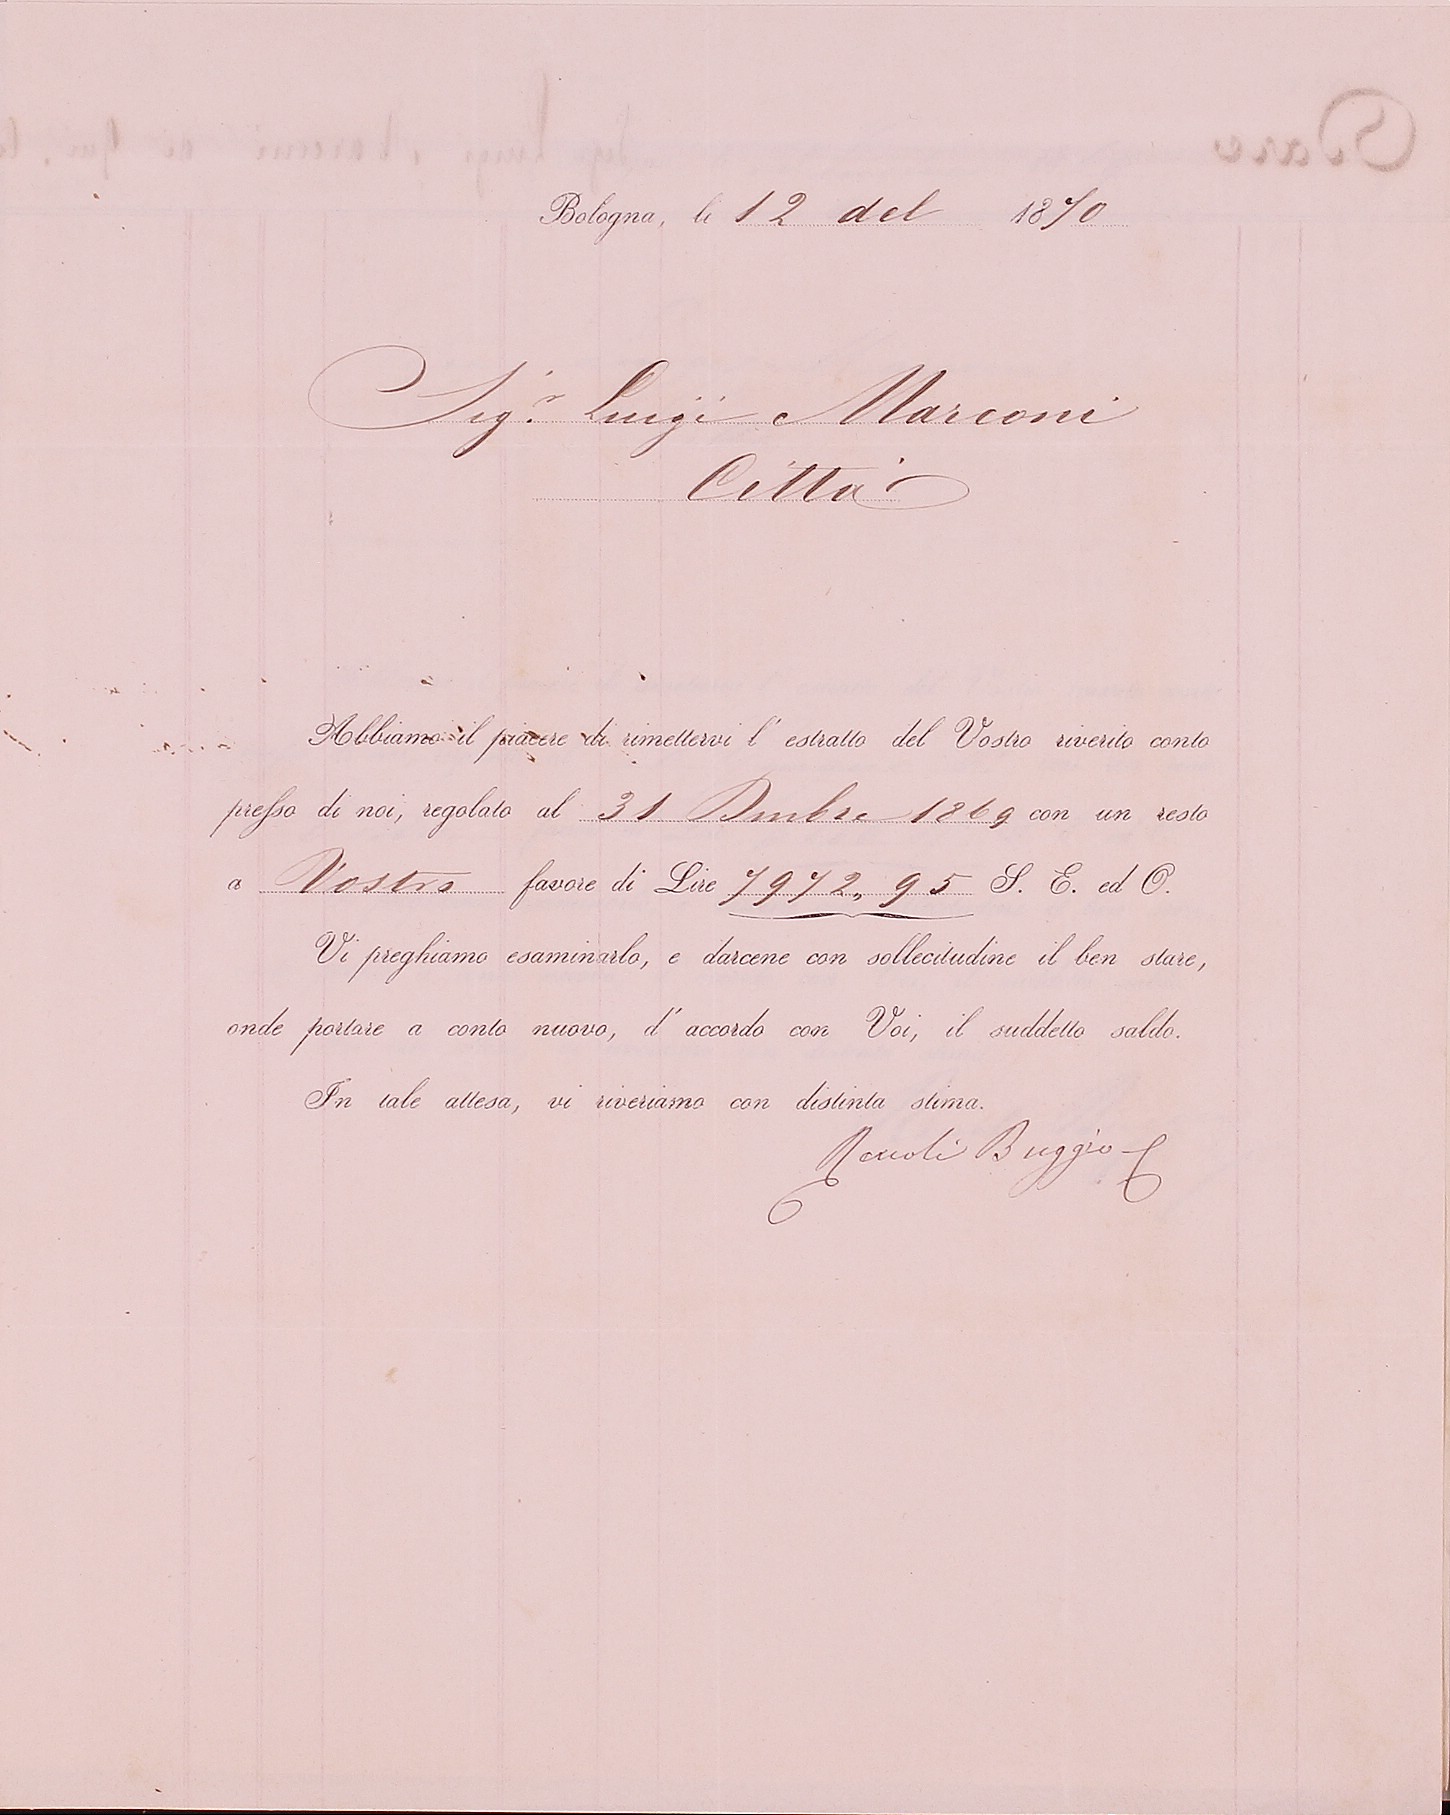 Bologna, li 12 del 1870
Sig.r Luigi Marconi
Città
Abbiamo il piacere di rimettervi l' estratto del Vostro riverito conto
presso di noi, regolato al 31 Dmbre 1869 con un resto
a Vostro favore di Lire 7972, 95 S. E. ed O.
Vi preghiamo esaminarlo, e darcene con sollecitudine il ben stare,
onde portare a conto nuovo, d' accordo con Voi, il suddetto saldo.
In tale attesa, vi riveriamo con distinta stima.
Buggio